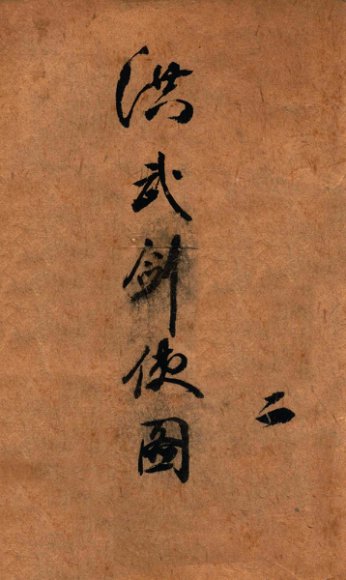 洪武劍使圖
二